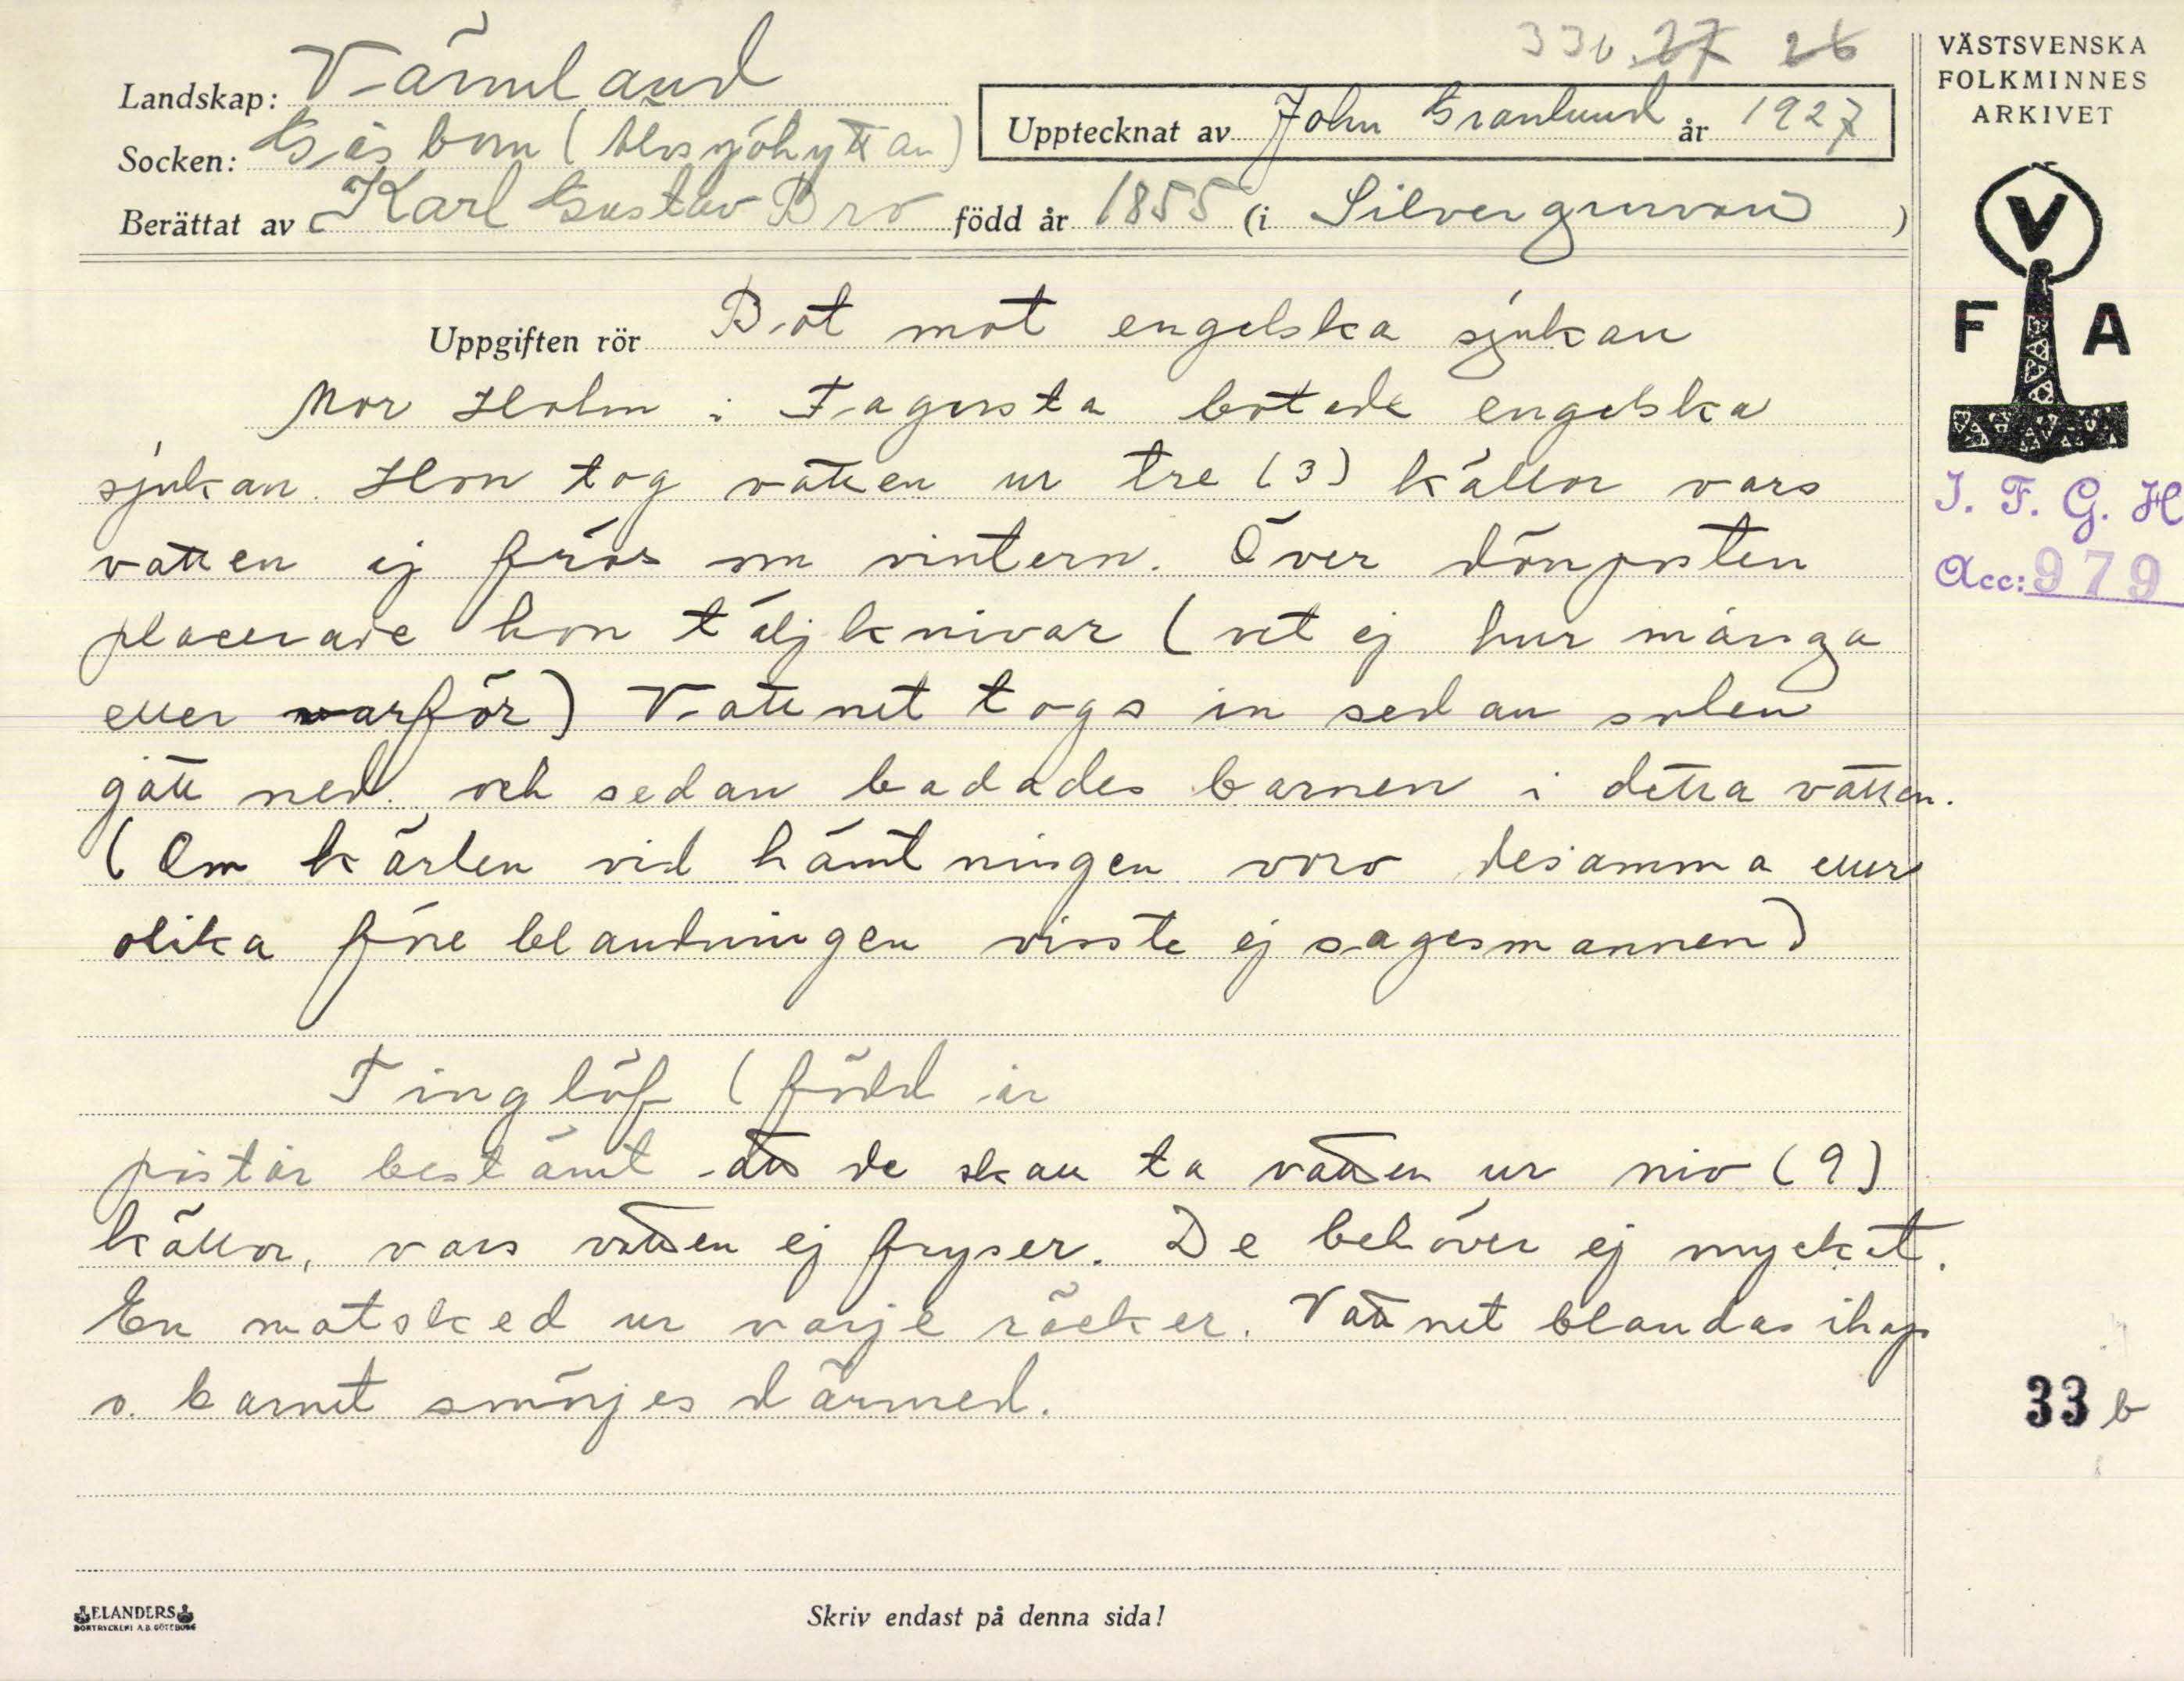 33b. 27 26
VÄSTSVENSKA
FOLKMINNES
ARKIVET
Landskap: Värmland
Socken: Gåsborn (Älvsjöhyttan)
Upptecknat av John Granlund år 1927
Berättat av Karl Gustav Bro född år 1855 (i Silvergruvan)
V
F A
I. F. G. H
Acc: 979
Uppgiften rör Bot mot engelska sjukan
Mor Holm i Fagersta botade engelska
sjukan. Hon tog vatten ur tre (3) källor vars
vatten ej frös om vintern. Över dörrposten
placerade hon täljknivar (vet ej hur många
eller varför) Vattnet togs in sedan solen
gått ned. och sedan badades barnen i detta vatten.
(Om kärlen vid hämtningen voro desamma eller
olika före blandningen visste ej sagesmannen)
Tinglöf (född år
påstår bestämt att de skall ta vatten ur nio (9)
källor, vars vatten ej fryser. De behöver ej mycket.
En matsked ur varje räcker. Vattnet blandas ihop
o. barnet smörjes därmed.
33 b
ELANDERS
BOKTRYCKERI A.B. GÖTEBORG
Skriv endast på denna sida!